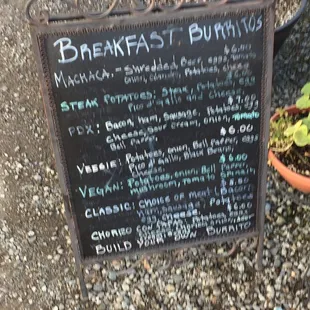 BREAKFAST BURRITOS
MACHACA - Shredded Beef, eggs,
onion, cilantro, Potatoes, Cheese
STEAK POTATOES: Steak, Potatoes, egg
Pico d' gallo and cheese
PDX: Bacon, ham, Sausage, Potatoes
Cheese, sour cream, onion, tomato
Bell Pepper $6.00
VEGGIE: Potatoes, onion, Bell Pepper
Pico d' gallo, Black Beans,
Cheese $6.00
VEGAN: onion, Bell Pepper
mushroom, tomato
CLASSIC: CHOICE OF meat: Bacon
ham, sausage, Potatoes
egg, cheese
CHORIZO Potatoes
BUILD YOUR OWN BURRITO